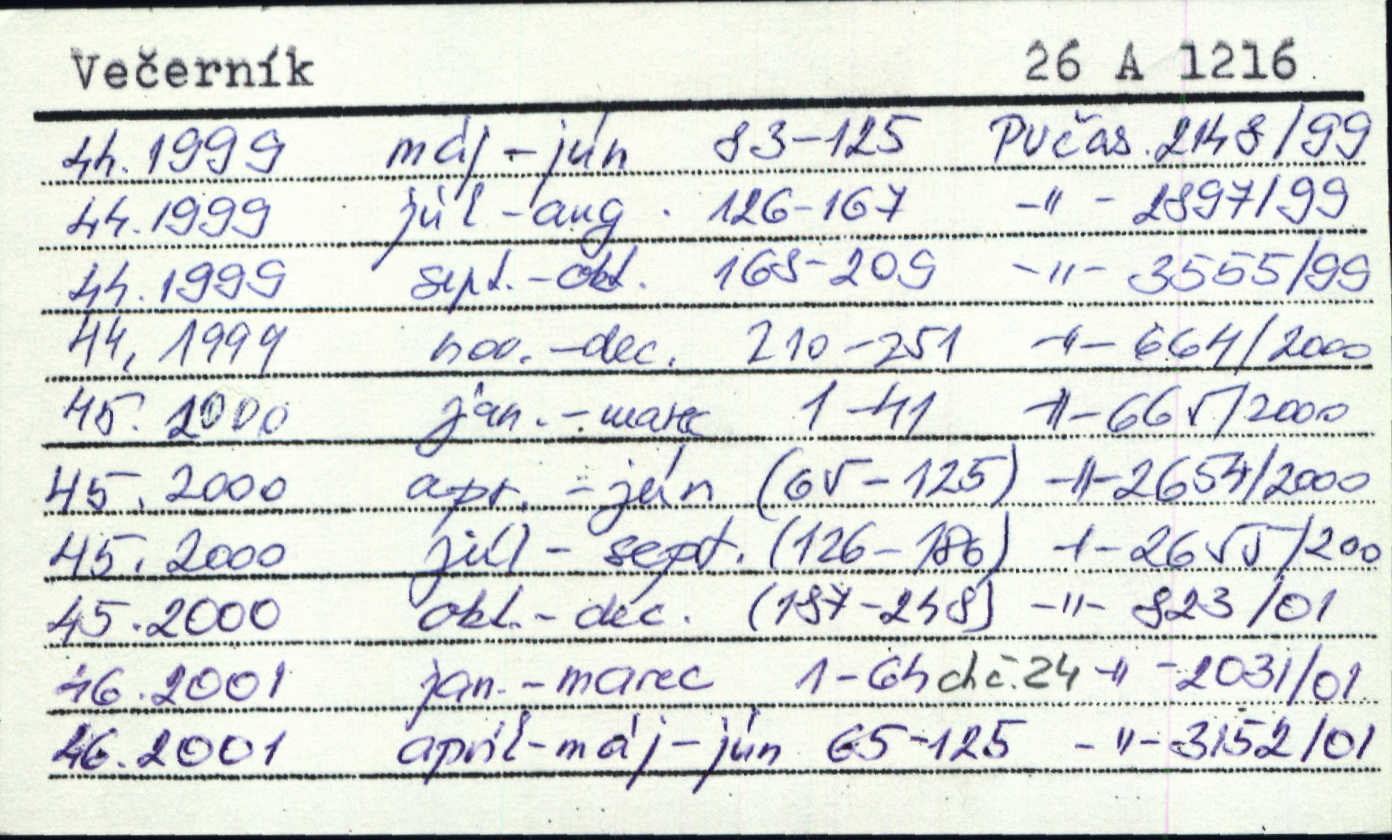 Večerník 26 A 1216
44.1999 máj-jún 83-125 PVčas. 2148/99
44.1999 júl-aug. 126-167 -"- 2897/99
44.1999 sept.-okt. 168-209 -"- 3555/99
44, 1999 nov.-dec. 210-251 -"- 664/2000
45. 2000 jan.-marec 1-41 -"- 665/2000
45. 2000 apr.-jún (65-125) -"- 2654/2000
45. 2000 júl-sept. (126-186) -"- 2655/200
45.2000 okt.-dec. (187-248) -"- 823/01
46.2001 jan.-marec 1-64 chč.24 -"- 2031/01
46.2001 apríl-máj-jún 65-125 -"- 3152/01